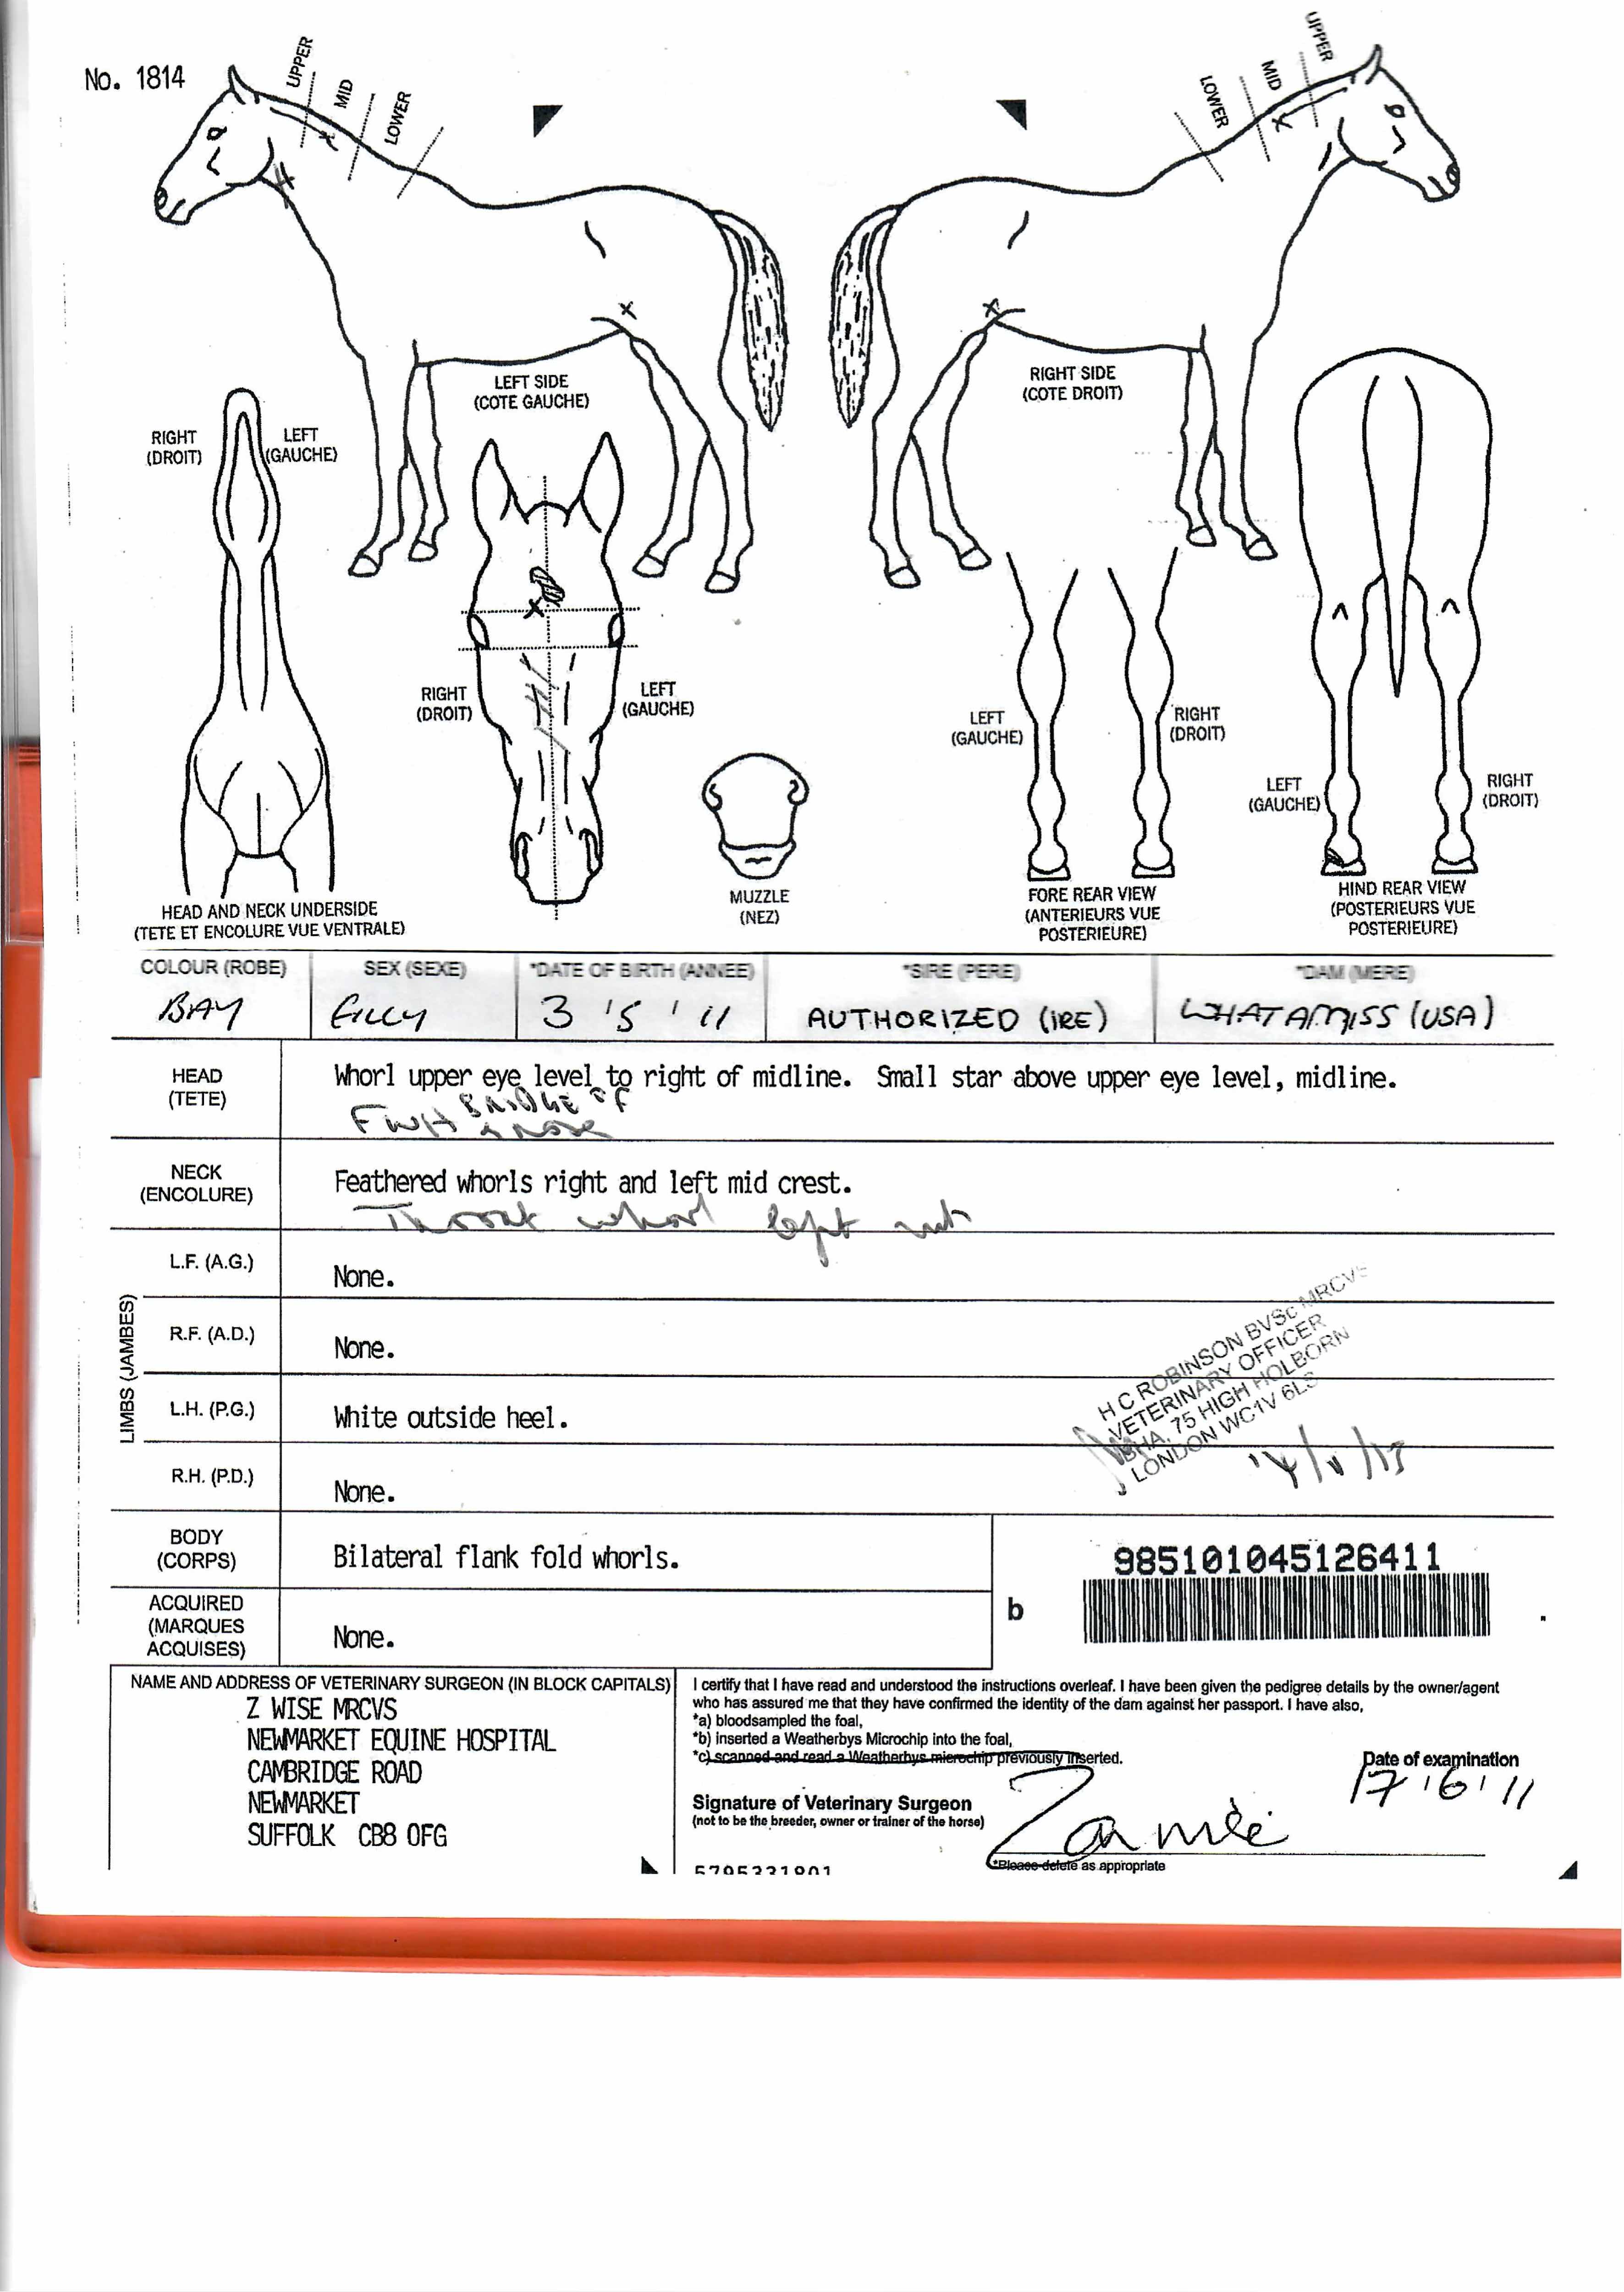 No. 1814
UPPER
MID
LOWER
LOWER
MID
UPPER
LEFT SIDE
(COTE GAUCHE)
RIGHT SIDE
(COTE DROIT)
RIGHT
(DROIT)
LEFT
(GAUCHE)
RIGHT
(DROIT)
LEFT
(GAUCHE)
LEFT
(GAUCHE)
RIGHT
(DROIT)
LEFT
(GAUCHE)
RIGHT
(DROIT)
HEAD AND NECK UNDERSIDE
(TETE ET ENCOLURE VUE VENTRALE)
MUZZLE
(NEZ)
FORE REAR VIEW
(ANTERIEURS VUE
POSTERIEURE)
HIND REAR VIEW
(POSTERIEURS VUE
POSTERIEURE)
COLOUR (ROBE) SEX (SEXE) *DATE OF BIRTH (ANNEE) *SIRE (PERE) *DAM (MERE)
BAY FILLY 3 '5 ' 11 AUTHORIZED (IRE) WHATAMISS (USA)
HEAD
(TETE)
Whorl upper eye level to right of midline. Small star above upper eye level, midline.
FWH BRIDGE OF
nose
NECK
(ENCOLURE)
Feathered whorls right and left mid crest.
Throat whorl left
LIMBS (JAMBES)
L.F. (A.G.)
None.
R.F. (A.D.)
None.
L.H. (P.G.)
White outside heel.
R.H. (P.D.)
None.
H C ROBINSON BVSc MRCVS
VETERINARY OFFICER
BHA, 75 HIGH HOLBORN
LONDON WC1V 6LS
BODY
(CORPS)
Bilateral flank fold whorls.
ACQUIRED
(MARQUES
ACQUISES)
None.
b
985101045126411
NAME AND ADDRESS OF VETERINARY SURGEON (IN BLOCK CAPITALS)
Z WISE MRCVS
NEWMARKET EQUINE HOSPITAL
CAMBRIDGE ROAD
NEWMARKET
SUFFOLK CB8 0FG
I certify that I have read and understood the instructions overleaf. I have been given the pedigree details by the owner/agent
who has assured me that they have confirmed the identity of the dam against her passport. I have also,
*a) bloodsampled the foal,
*b) inserted a Weatherbys Microchip into the foal,
*c) scanned and read a Weatherbys microchip previously inserted.
Date of examination
17 '6 ' 11
Signature of Veterinary Surgeon
(not to be the breeder, owner or trainer of the horse)
*Please delete as appropriate